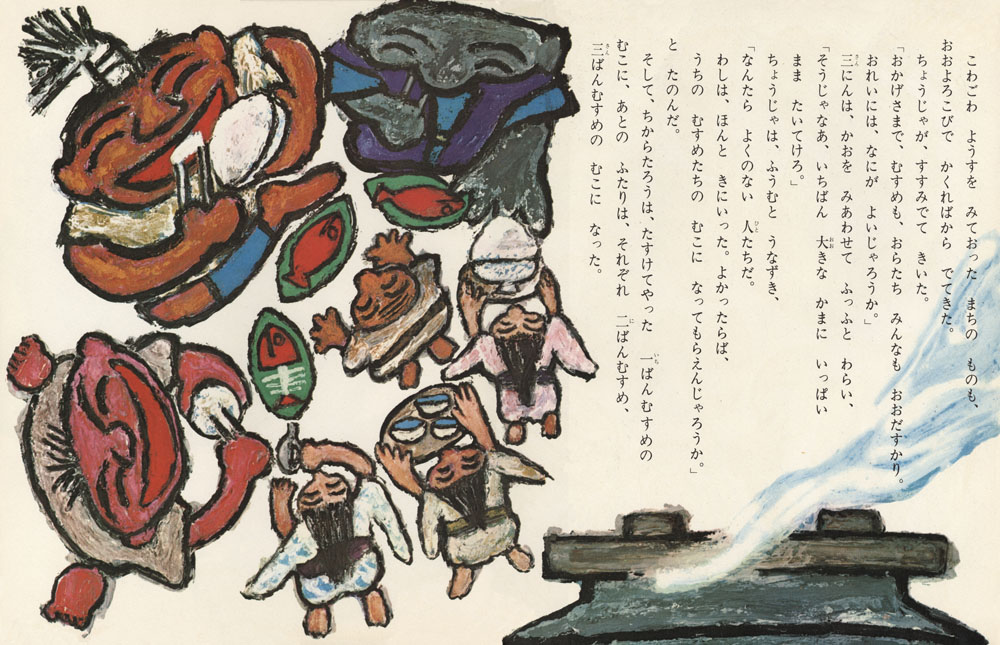 こわごわ　ようすを　みておった　まちの　ものも、
おおよろこびで　かくればから　でてきた。
ちょうじゃが、すすみでて　きいた。
「おかげさまで、むすめも、おらたち　みんなも　おおだすかり。
おれいには、なにが　よいじゃろうか。」
三にんは、かおを　みあわせて　ふっふと　わらい、
「そうじゃなあ、いちばん　大きな　かまに　いっぱい
まま　たいてけろ。」
ちょうじゃは、ふうむと　うなずき、
「なんたら　よくのない　人たちだ。
わしは、ほんと　きにいった。よかったらば、
うちの　むすめたちの　むこに　なってもらえんじゃろうか。」
と　たのんだ。
そして、ちからたろうは、たすけてやった　一ばんむすめの
むこに、あとの　ふたりは、それぞれ　二ばんむすめ、
三ばんむすめの　むこに　なった。